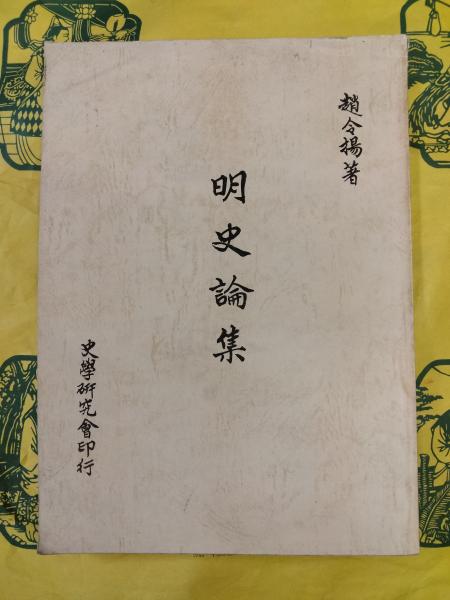 趙令揚著
明史論集
史學研究會印行